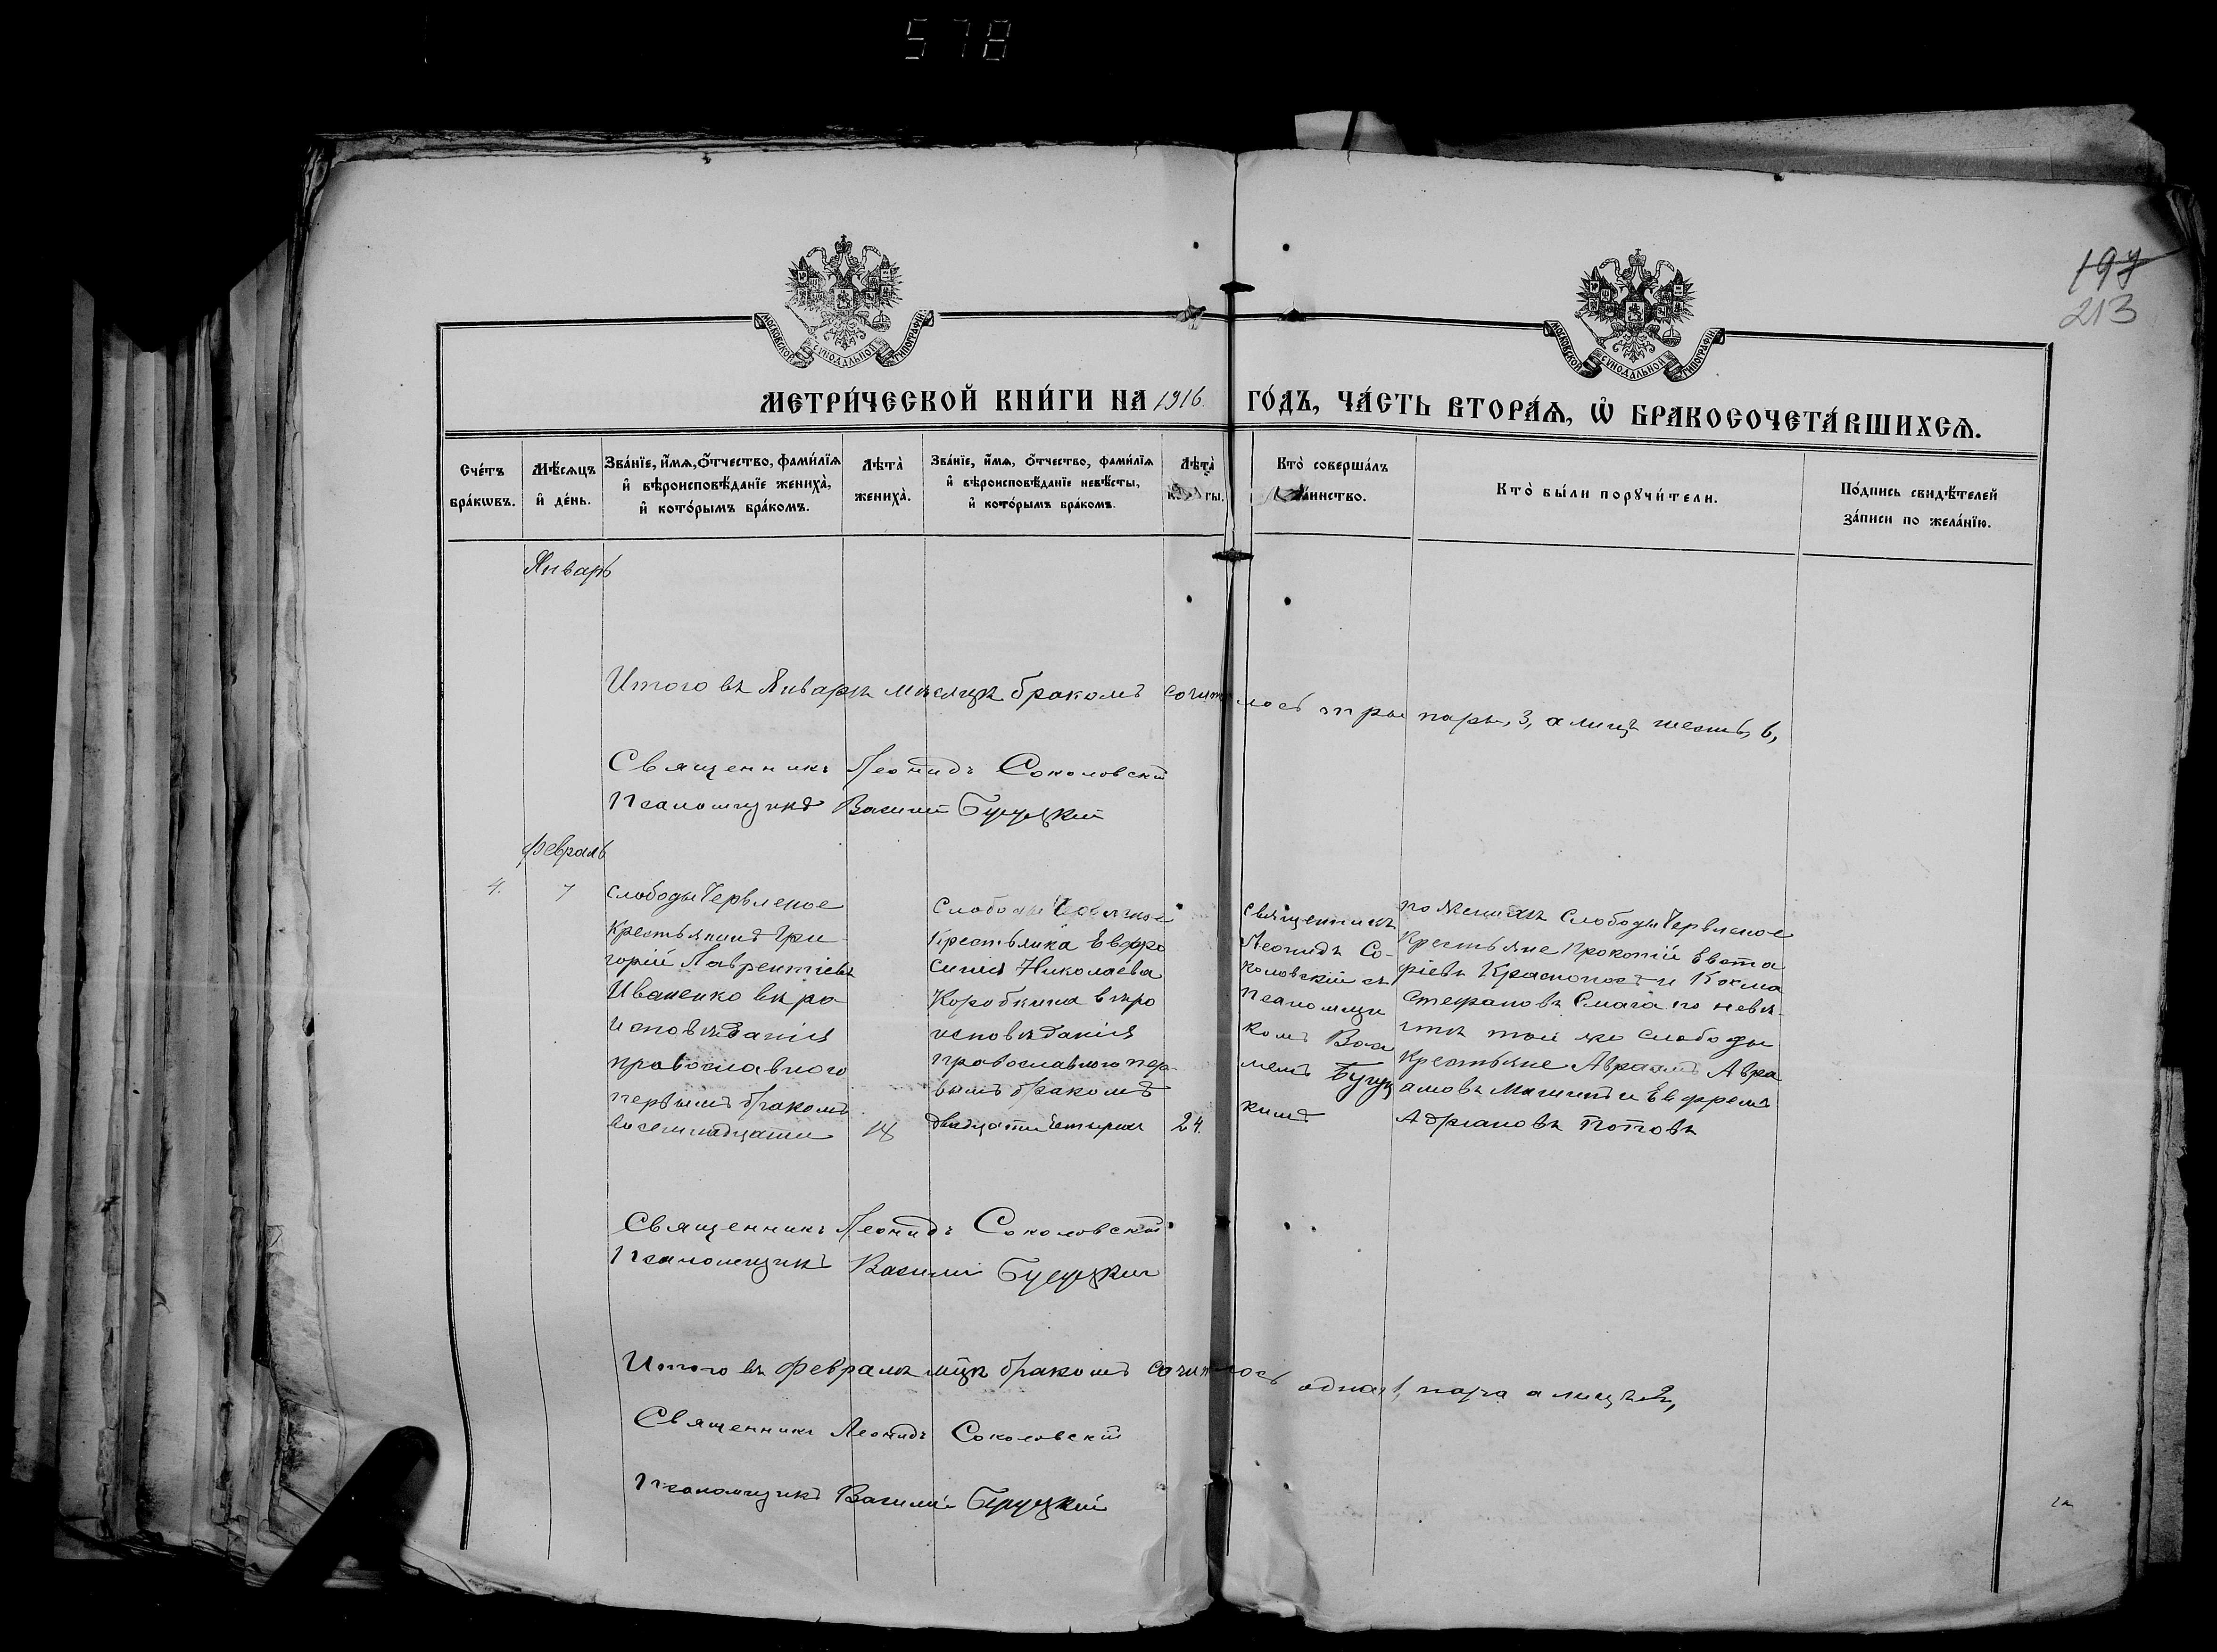 578
197
213
МОСКОВСКОЙ СУНОДАЛЬНОЙ ТИПОГРАФІИ
МОСКОВСКОЙ СУНОДАЛЬНОЙ ТИПОГРАФІИ
МЕТРИ́ЧЕСКОЙ КНИ́ГИ НА 1916 ГО́ДЪ, ЧА́СТЬ ВТОРА́Ѧ, Ѽ БРАКОСОЧЕТА́ВШИХСѦ.
Сче́тъ бра́кѡвъ.
Мѣ́сяцъ и҆ де́нь.
Зва́нїе, и҆́мѧ, ѻ҆́тчество, фами́лїѧ
и҆ вѣроисповѣ́данїе жениха̀,
и҆ кото́рымъ бра́комъ.
Лѣта̀ жениха̀.
Зва́нїе, и҆́мѧ, ѻ҆́тчество, фами́лїѧ
и҆ вѣроисповѣ́данїе невѣ́сты,
и҆ кото́рымъ бра́комъ.
Лѣта̀
Кто̀ соверша́лъ
Кто̀ бы́ли порꙋчи́тели.
По́дпись свидѣ́телей
за́писи по жела́нїю.
Январь
Итого въ Январѣ мѣсяцѣ бракомъ сочиталось три пары, 3, а лицъ шесть, 6,
Священникъ Леонидъ Соколовскій
Псаломщикъ Василий
Февраль
4. 7
слободы Червленое
Крестьянинъ Гри
горій Лаврентіевъ
Иваненко вѣро
исповѣданія
православного
первымъ бракомъ
восемнадцати 18
Слободы
Крестьянка Евфро
синія Николаева
Коробкина вѣро
исповѣданія
православного пер
вымъ бракомъ
двадцати четырех 24.
Священникъ
Леонидъ Со-
коловскій съ
псаломщи
комъ Васи
лемъ
кимъ
по женихѣ слободы Червленое
Крестьяне Прокопій Евста
фіевъ и Козма
Стефановъ по невѣ
стѣ той же слободы
Крестьяне Авраамъ Авра
амовъ и Ефремъ
Адріановъ Поповъ
Священникъ Леонидъ Соколовскій
Псаломщикъ Василий
Итого въ Февралѣ мцѣ бракомъ сочиталось одна 1, пара а лицъ 2,
Священникъ Леонидъ Соколовскій
Псаломщикъ Василій